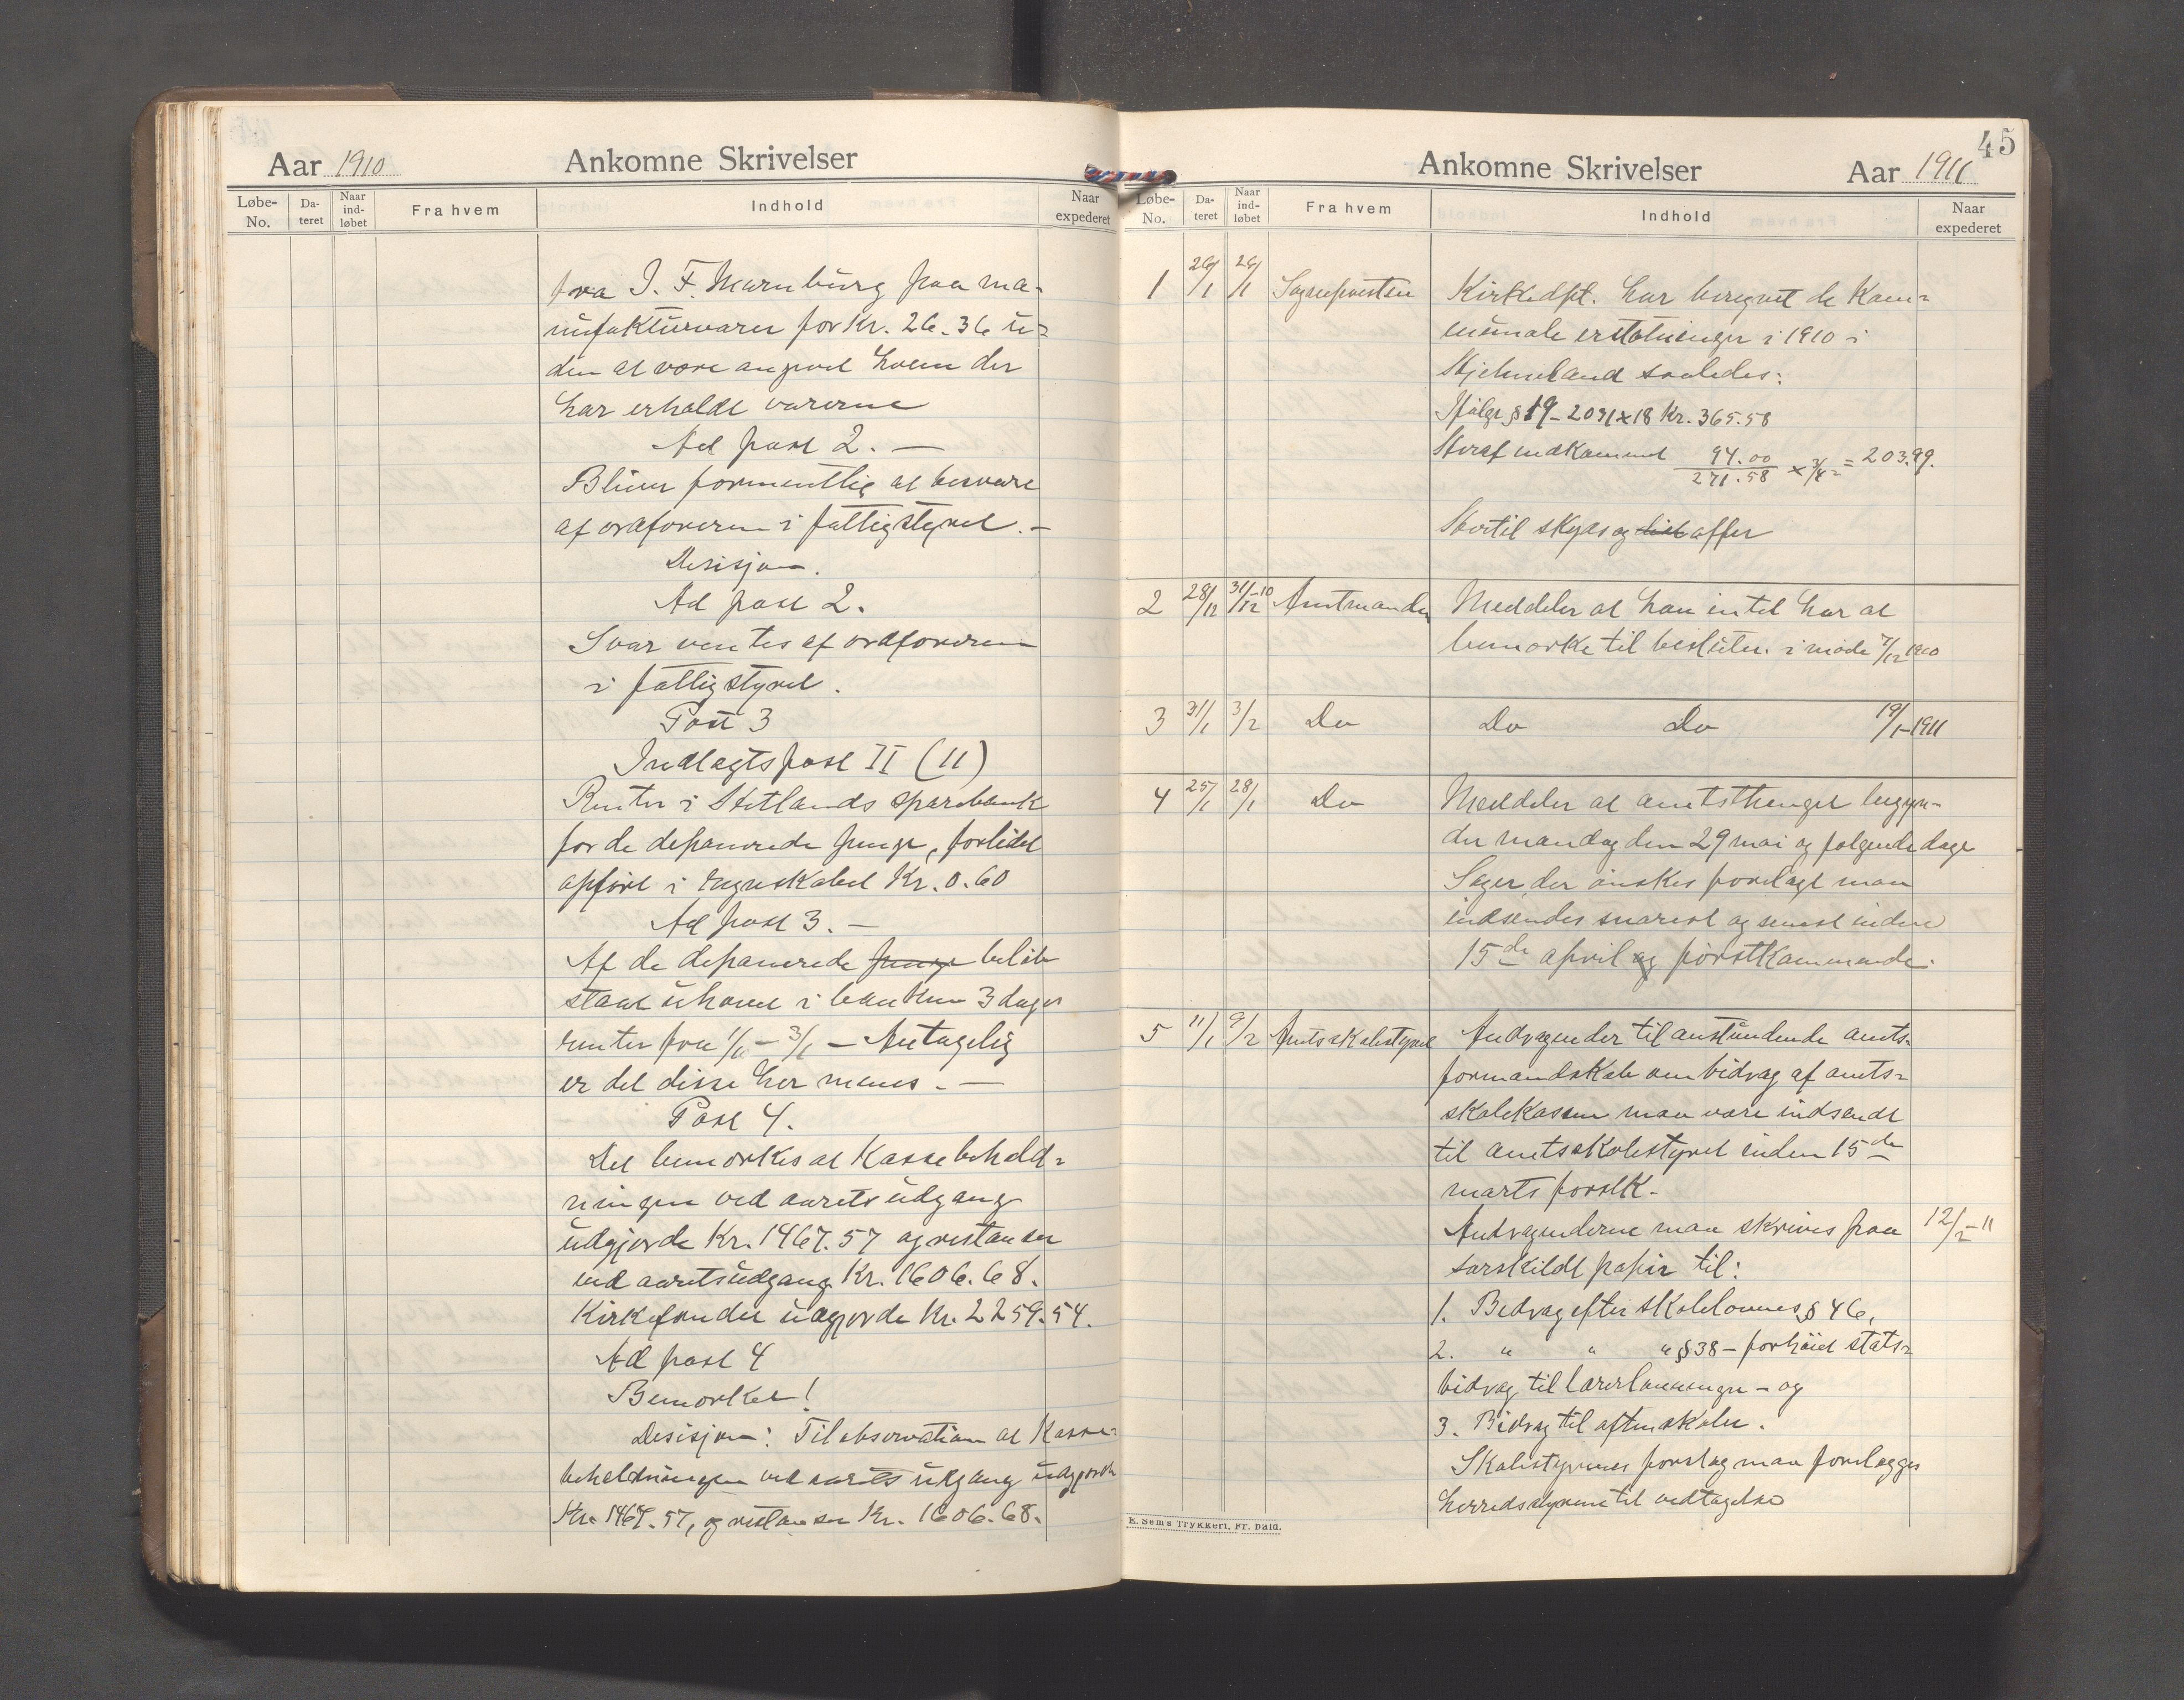 Aar 1910
Ankomne Skrivelser
Løbe-No.
Da-teret
Naar ind-løbet
Fra hvem
Indhold
Naar expederet
fra I. F. Marnburg paa ma-
nufakturvarer for Kr. 26.36 u-
den at være angivet hvem der
har erholdt varerne
Ad post 2. —
Bliver formentlig at besvare
af ordføreren i fattigstyret. —
Desisjon.
Ad post 2.
Svar ventes af ordføreren
i fattigstyret.
Post 3
Indtægtspost II (11)
Renter i Hetlands sparebank
for de deponerede penge, forlidet
opført i regnskabet Kr. 0.60
Ad post 3. —
Af de deponerede penge beløb
staar uhævet i banken 3 dages
renter fra 1/1 – 3/1 – Antagelig
er det disse her menes. —
Post 4.
Det bemærkes at Kassebehold-
ningen ved aarets udgang
udgjorde Kr. 1467.57 og restanser
ved aarets udgang Kr. 1606.68.
Kirkefondet udgjorde Kr. 2259.54.
Ad post 4
Bemerket!
Desisjon: Til observation at Kasse-
beholdningen ved aarets udgang udgjorde
Kr. 1467.57, og restanser Kr. 1606.68.
45
Ankomne Skrivelser
Aar 1911
Løbe-No.
Da-teret
Naar ind-løbet
Fra hvem
Indhold
Naar expederet
1 26/1 26/1 Sognepresten Kirkedpt. har beregnet de Kom-
munale erstatninger i 1910 i
Skjelmeland saaledes:
Ifølge § 19 – 2031 x 18 Kr. 365.58
Heraf indkommet 94.00
271.58 x 3/4 = 203.99.
Hertil skyds og offer
2 28/12 31/12-10 Amtmanden Meddeler at han intet har at
bemærke til beslutn. i møde 7/12 1910
3 31/1 3/2 Do Do Do 19/1-1911
4 25/1 28/1 Do Meddeler at amtsthinget begyn-
der mandag den 29 mai og følgende dage
Sager der ønskes forelagt maa
indsendes snarest og senest inden
15de april og førstkommende.
5 11/1 9/2 Amtsskolestyret Andragender til anstundende amts-
formandskab om bidrag af amts-
skolekassen maa være indsendt
til amtsskolestyret inden 15de
marts førstk.
Andragenderne maa skrives paa 12/2-11
særskildt papir til:
1. Bidrag efter skolelovens § 46,
2. " " " § 38 – forhøiet stats-
bidrag til lærerlønninger – og
3. Bidrag til aftenskoler.
Skolestyrenes forslag maa forelægges
herredsstyrene til vedtagelse
E. Sem's Trykkeri, Fr. hald.